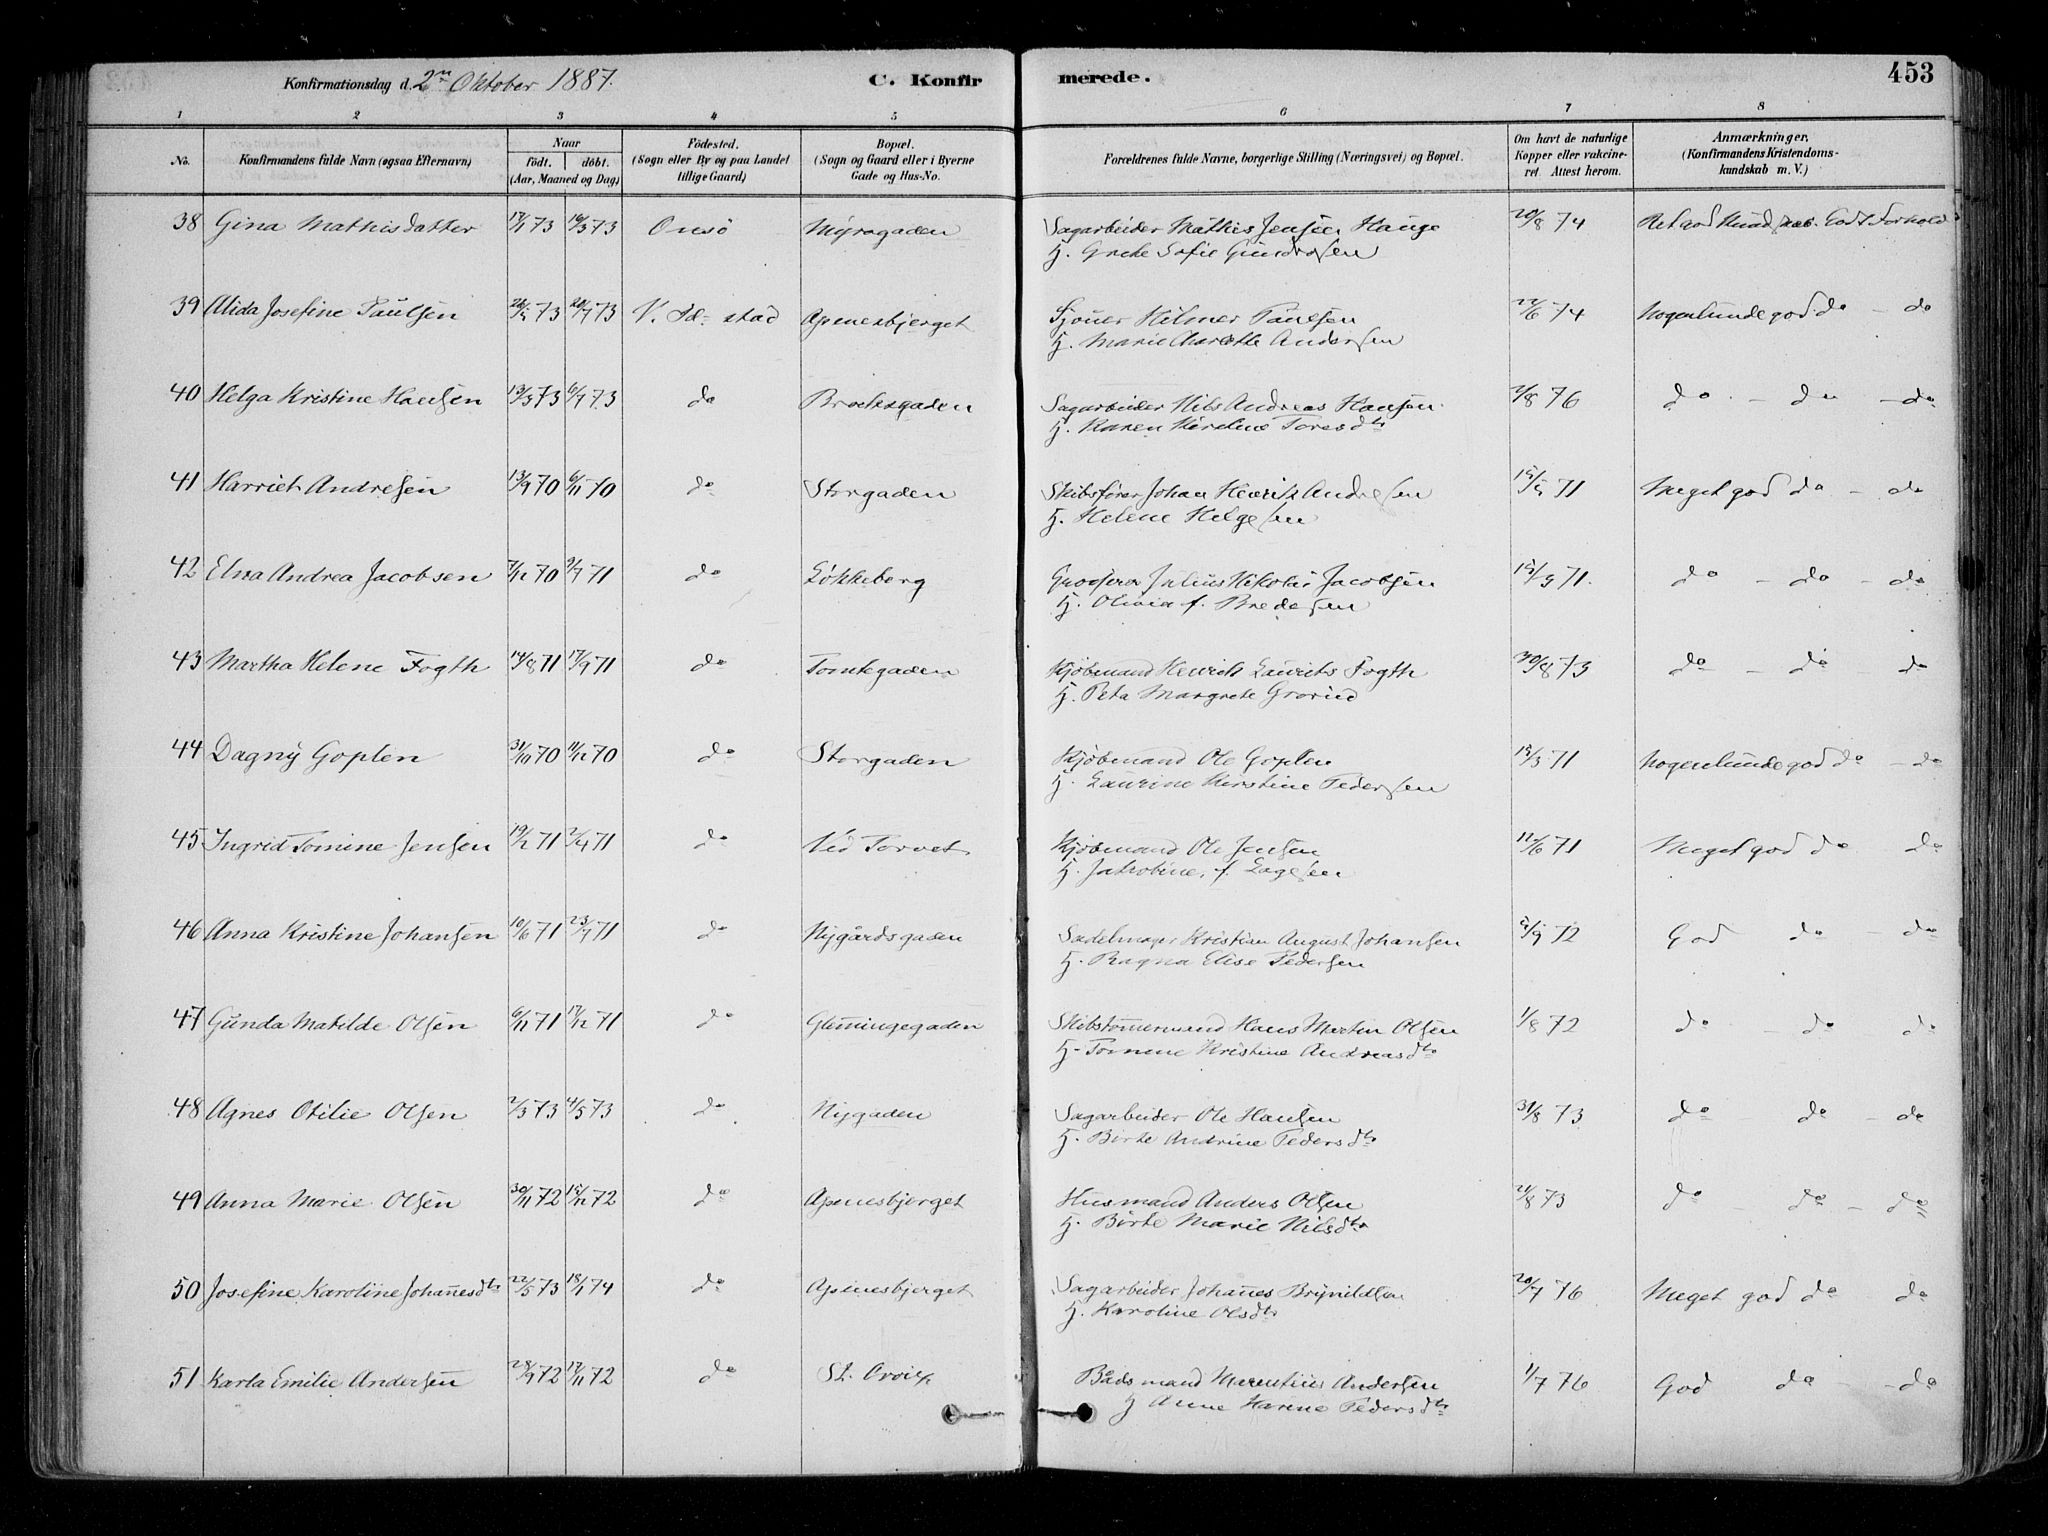 Konfirmationsdag d. 2den Oktober 1887. C. Konfirmerede. 453
1 2 3 4 5 6 7 8
No. Konfirmandens fulde Navn (ogsaa Efternavn) Naar født. døbt. (Aar, Maaned og Dag) Fødested. (Sogn eller By og paa Landet tillige Gaard) Bopæl. (Sogn og Gaard eller i Byerne Gade og Hus-No. Forældrenes fulde Navne, borgerlige Stilling (Næringsvei) og Bopæl. Om havt de naturlige Kopper eller vakcineret. Attest herom. Anmærkninger. (Konfirmandens Kristendomskundskab m. V.)
38 Gina Mathisdatter 17/1 73 16/3 73 Onsö Myragaden Sagarbeider Mathis Jensen Hauge 20/8 74 Ret god Kundskab. Godt Forhold
H. Grethe Sofie Gundrosen
39 Alida Josefine Paulsen 28/5 73 20/7 73 V. Fd. stad Apenesbjerget Sjouer Hilmer Paulsen 22/6 74 Nogenlunde god do - do
H. Marie Charlotte Andersen
40 Helga Kristine Hansen 13/3 73 6/7 73 do Brochsgaden Sagarbeider Nils Andreas Hansen 2/8 76 do - do - do
H. Karen Kirstine Toresdtr
41 Harriet Andresen 13/9 70 6/11 70 do Storgaden Skibsfører Johan Henrik Andresen 15/5 71 Meget god do - do
H. Helene Helgesen
42 Elna Andrea Jacobsen 7/12 70 2/7 71 do Løkkeberg Grosserer Julius Nikolai Jacobsen 15/5 71. do - do - do
H. Olivia f. Bredesen
43 Martha Helene Fogth 14/8 71 17/9 71 do Tomtegaden Kjøbmand Henrik Lauritz Fogth 30/8 73 do - do do
H. Peta Margrete Grorud
44 Dagny Goplen 31/10 70 11/12 70 do Storgaden Kjøbmand Ole Goplen 19/3 71 Nogenlunde god do - do
H. Laurine Kirstine Pedersen
45 Ingrid Tomine Jensen 19/2 71 2/4 71 do Ved Torvet Kjøbmand Ole Jensen 12/6 71 Meget god do - do
H. Jakobine, f. Lagesen
46 Anna Kristine Johansen 10/6 71 23/7 71 do Nygårdsgaden Sadelmager Kristian August Johansen 5/9 72 God do - do
H. Ragna Elise Pedersen
47 Gunda Matilde Olsen 6/11 71 17/12 71 do Glemmingegaden Skibstømermand Hans Martin Olsen 1/8 72 do - do do
H. Tomine Kristine Andreasdtr
48 Agnes Otilie Olsen 2/3 73 4/5 73 do Nygaden Sagarbeider Ole Hansen 31/8 73 do do - do
H. Birte Andrine Pedersdtr
49 Anna Marie Olsen 30/11 72 15/12 72 do Apenesbjerget Husmand Anders Olsen 21/8 73 do - do - do
H. Birte Marie Nilsdtr
50 Josefine Karoline Johannesdtr 22/5 73 18/1 74 do Apenesbjerget Sagarbeider Johannes Brynildsen 20/7 76 Meget god do do
H. Karoline Olsdtr
51 Karla Emilie Andersen 28/9 72 17/11 72 do St. Croix Bådsmand Marentius Andersen 1/7 76 God do - do
H Anne Karine Pedersdtr